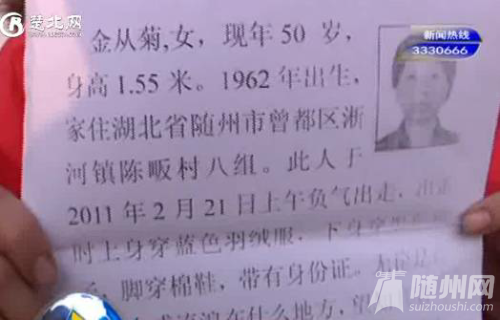 楚北网
新闻热线
3330666
金从菊,女，现年50岁，
身高1.55米。1962年出生，
家住湖北省随州市曾都区淅
河镇陈畈村八组。此人于
2011年2月21日上午负气出走，出走
时上身穿蓝色羽绒服，下身穿
脚穿棉鞋，带有身份证。
在什么地方，望
随州网
suizhoushi.com